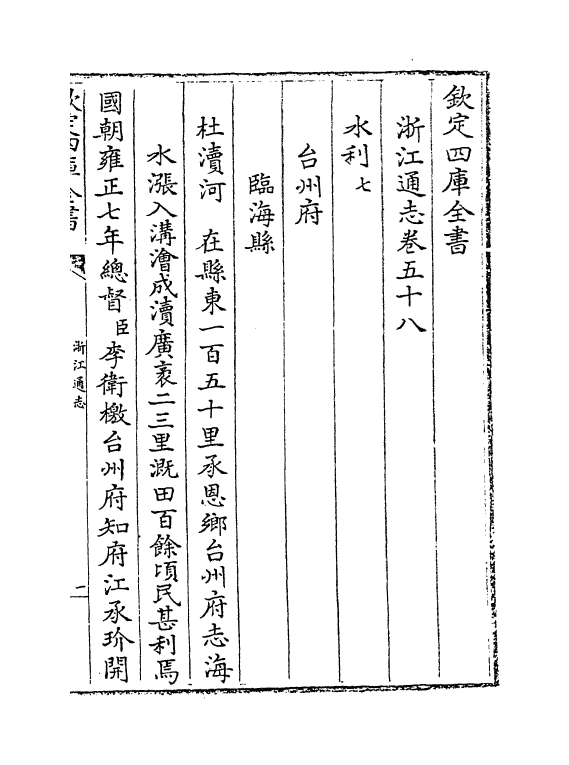 欽定四庫全書
浙江通志卷五十八
水利七
台州府
臨海縣
杜瀆河　在縣東一百五十里承恩鄉台州府志海
水漲入溝澮成瀆廣袤二三里溉田百餘頃民甚利焉
國朝雍正七年總督臣李衛檄台州府知府江承玠開
欽定四庫全書
浙江通志